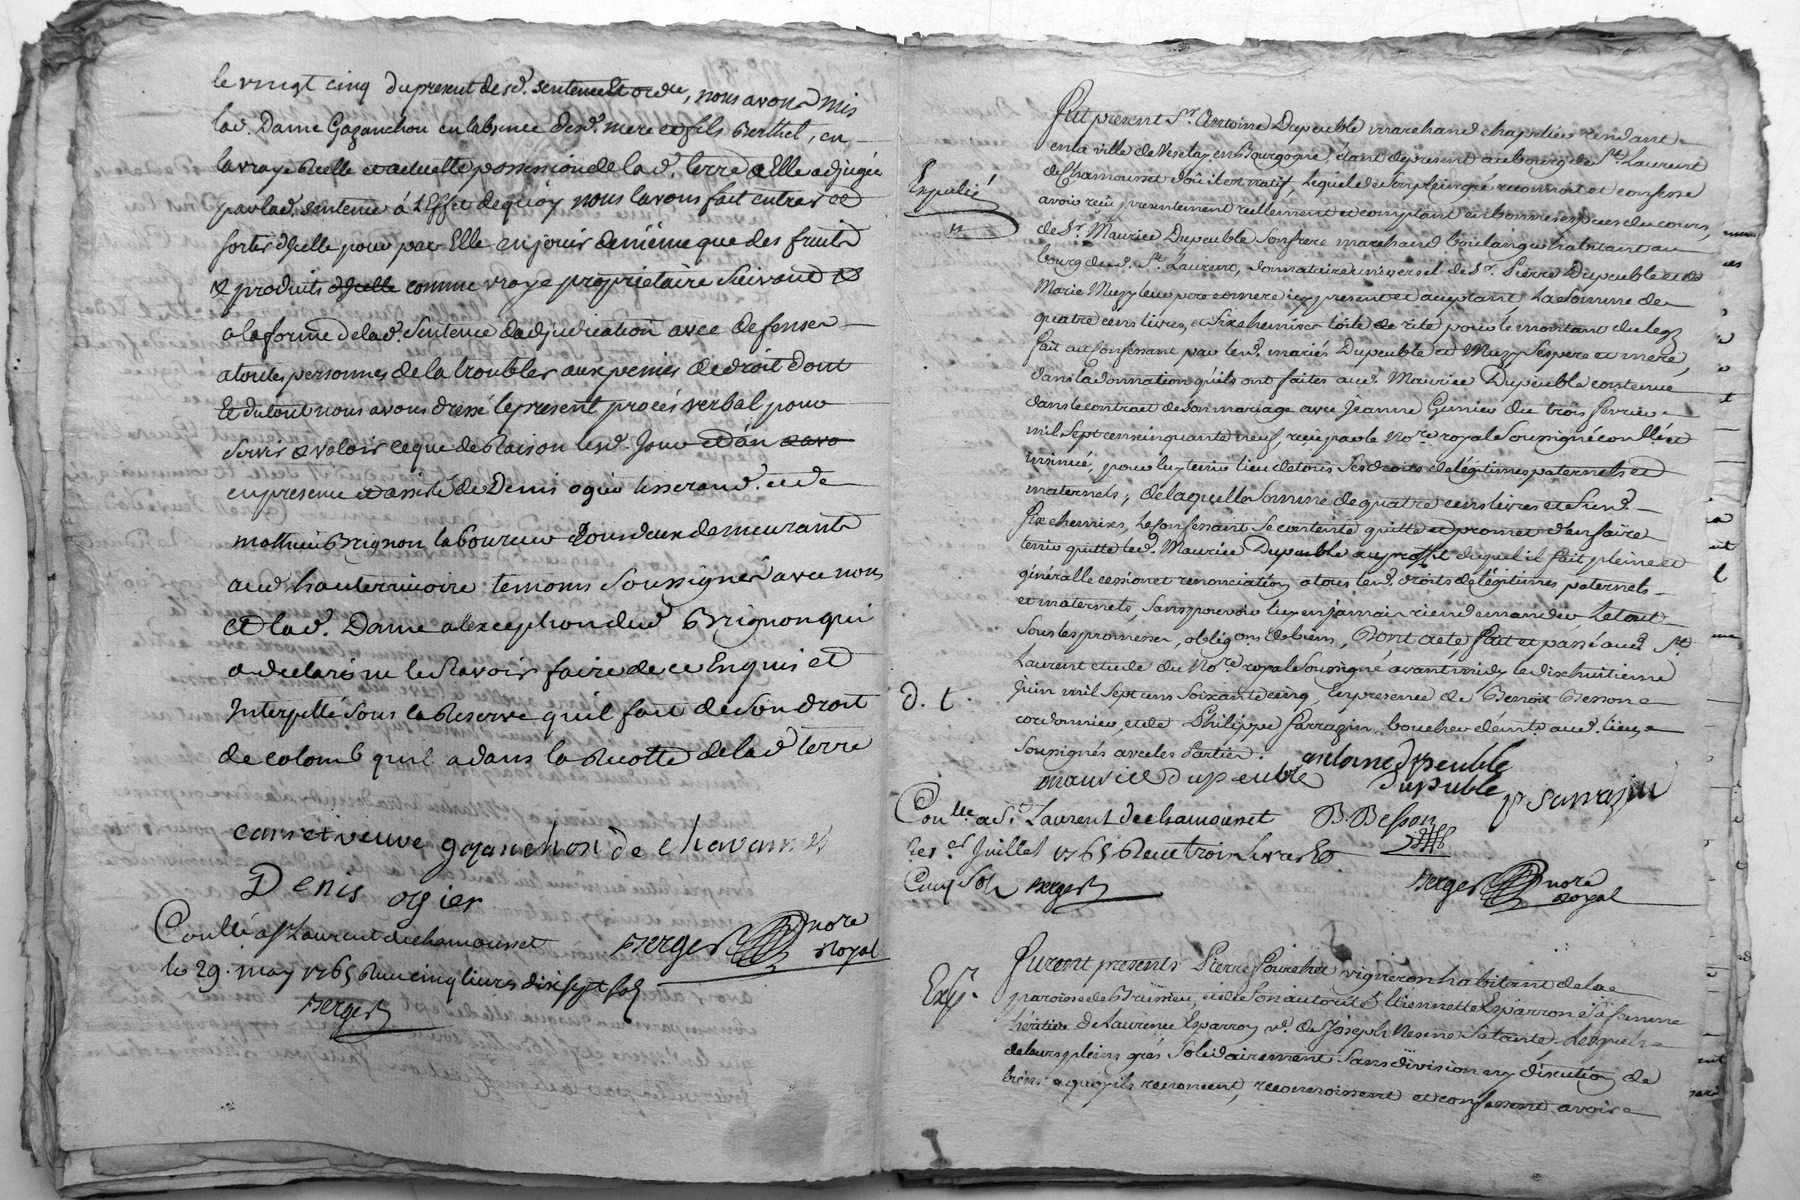 le vingt cinq du present de sd. sentence et ordre, nous avons mis
lad. Dame Gazanchou en labsence desd. mere et fils Berthet, en
la vraye Reelle et actuelle possession de lad. terre a Elle adjugée
par lad. sentence à L'Effet de quoy nous lavons fait entrer et
sortir d'jcelle pour par Elle en jouir de meme que des fruits
& produits d'jcelle comme vraye proprietaire suivant &
a la forme de lad. sentence dadjudication avec defense
a toutes personnes de la troubler aux peines de droit dont
Et du tout nous avons dressé le present procés verbal pour
servir & valoir ce que de Raison lesd. Jour et an
en presence et assisté de Denis ogier tisserand. et de
mathieu Brignon laboureur tous deux demeurants
aud. hauterivoire temoins soussignés avec nous
et lad. Dame a lexception dud. Brignon qui
a declaré ne le scavoir faire de ce Enquis et
Interpellé sous la Reserve quil fait de son droit
de colon quil a dans la Recolte de lad. terre
carret veuve gazanchon de chavannes
Denis ogier
Conllé a St Laurent de chamousset
le 29. may 1765 Reçu cinq livres dix sept sols
Berger
Berger nore
Royal
Fut present Sr. Antoine Dupeuble marchand chapelier residant
en la ville de Veselay en Bourgogne, étant de present au bourg de St. Laurent
de Chamousset d'où il est natif, Lequel de son plein gré reconnoit et confesse
Expedié
avoir reçu presentement réellement et comptant en bonnes especes du cours,
de Sr. Maurice Dupeuble son frere marchand boulanger habitant au
bourg dud. St. Laurent, donnataire universel de Sr. Pierre Dupeuble et de
Marie Muzy leur pere et mere icy present et acceptant, La somme de
quatre cens livres, et six chemises toile de rite pour le montant du legs
fait au confessant par lesd. mariés Dupeuble et Muzy ses pere et mere,
dans la donnation qu'ils ont faites aud. Maurice Dupeuble contenue
dans le contract de son mariage avec Jeanne Grenier du trois fevrier
mil sept cens cinquante neuf, reçu par le Nore. royal soussigné conllé et
insinué, pour luy tenir lieu de tous ses droits de légitimes paternels et
maternels, de laquelle somme de quatre cens livres et susd.
six chemises, Le confessant se contente quitte et promet d'en faire
tenir quitte led. Maurice Dupeuble au proffit duquel il fait pleine et
génèralle cession et renonciation a tous sesd. droits de légitimes paternels
et maternels, sans pouvoir luy en jamais rien demander Le tout
sous les promesses, obligons. & biens, Dont acte fait et passé aud. St.
Laurent etude du Nore. royal soussigné, avant midy le dix huitieme
d. t.
Juin mil sept cens soixante cinq, En presence de Benoit Besson
cordonnier, et de Philippe Sarrazin boucher déints. aud. lieu
soussignés avec les Parties.
antoine dupeuble
maurice dupeuble
Dupeuble
p Sarrazin
Conllé a St. Laurent de chamousset
B. Besson
le 1er Juillet 1765 Reçu trois Livres
Cinq Sols Berger
Berger nore
Royal
Furent presents Pierre Pourchet vigneron habitant de la
Expé.
paroisse de Brussieu, et de son autorité Etiennette Esparron sa femme
héritiere de Laurence Esparron ve. de Joseph Resine sa tante, Lesquels
de leurs pleins grés solidairement sans division ny discution de
biens a quoy ils renoncent, reconnoissent et confessent avoir